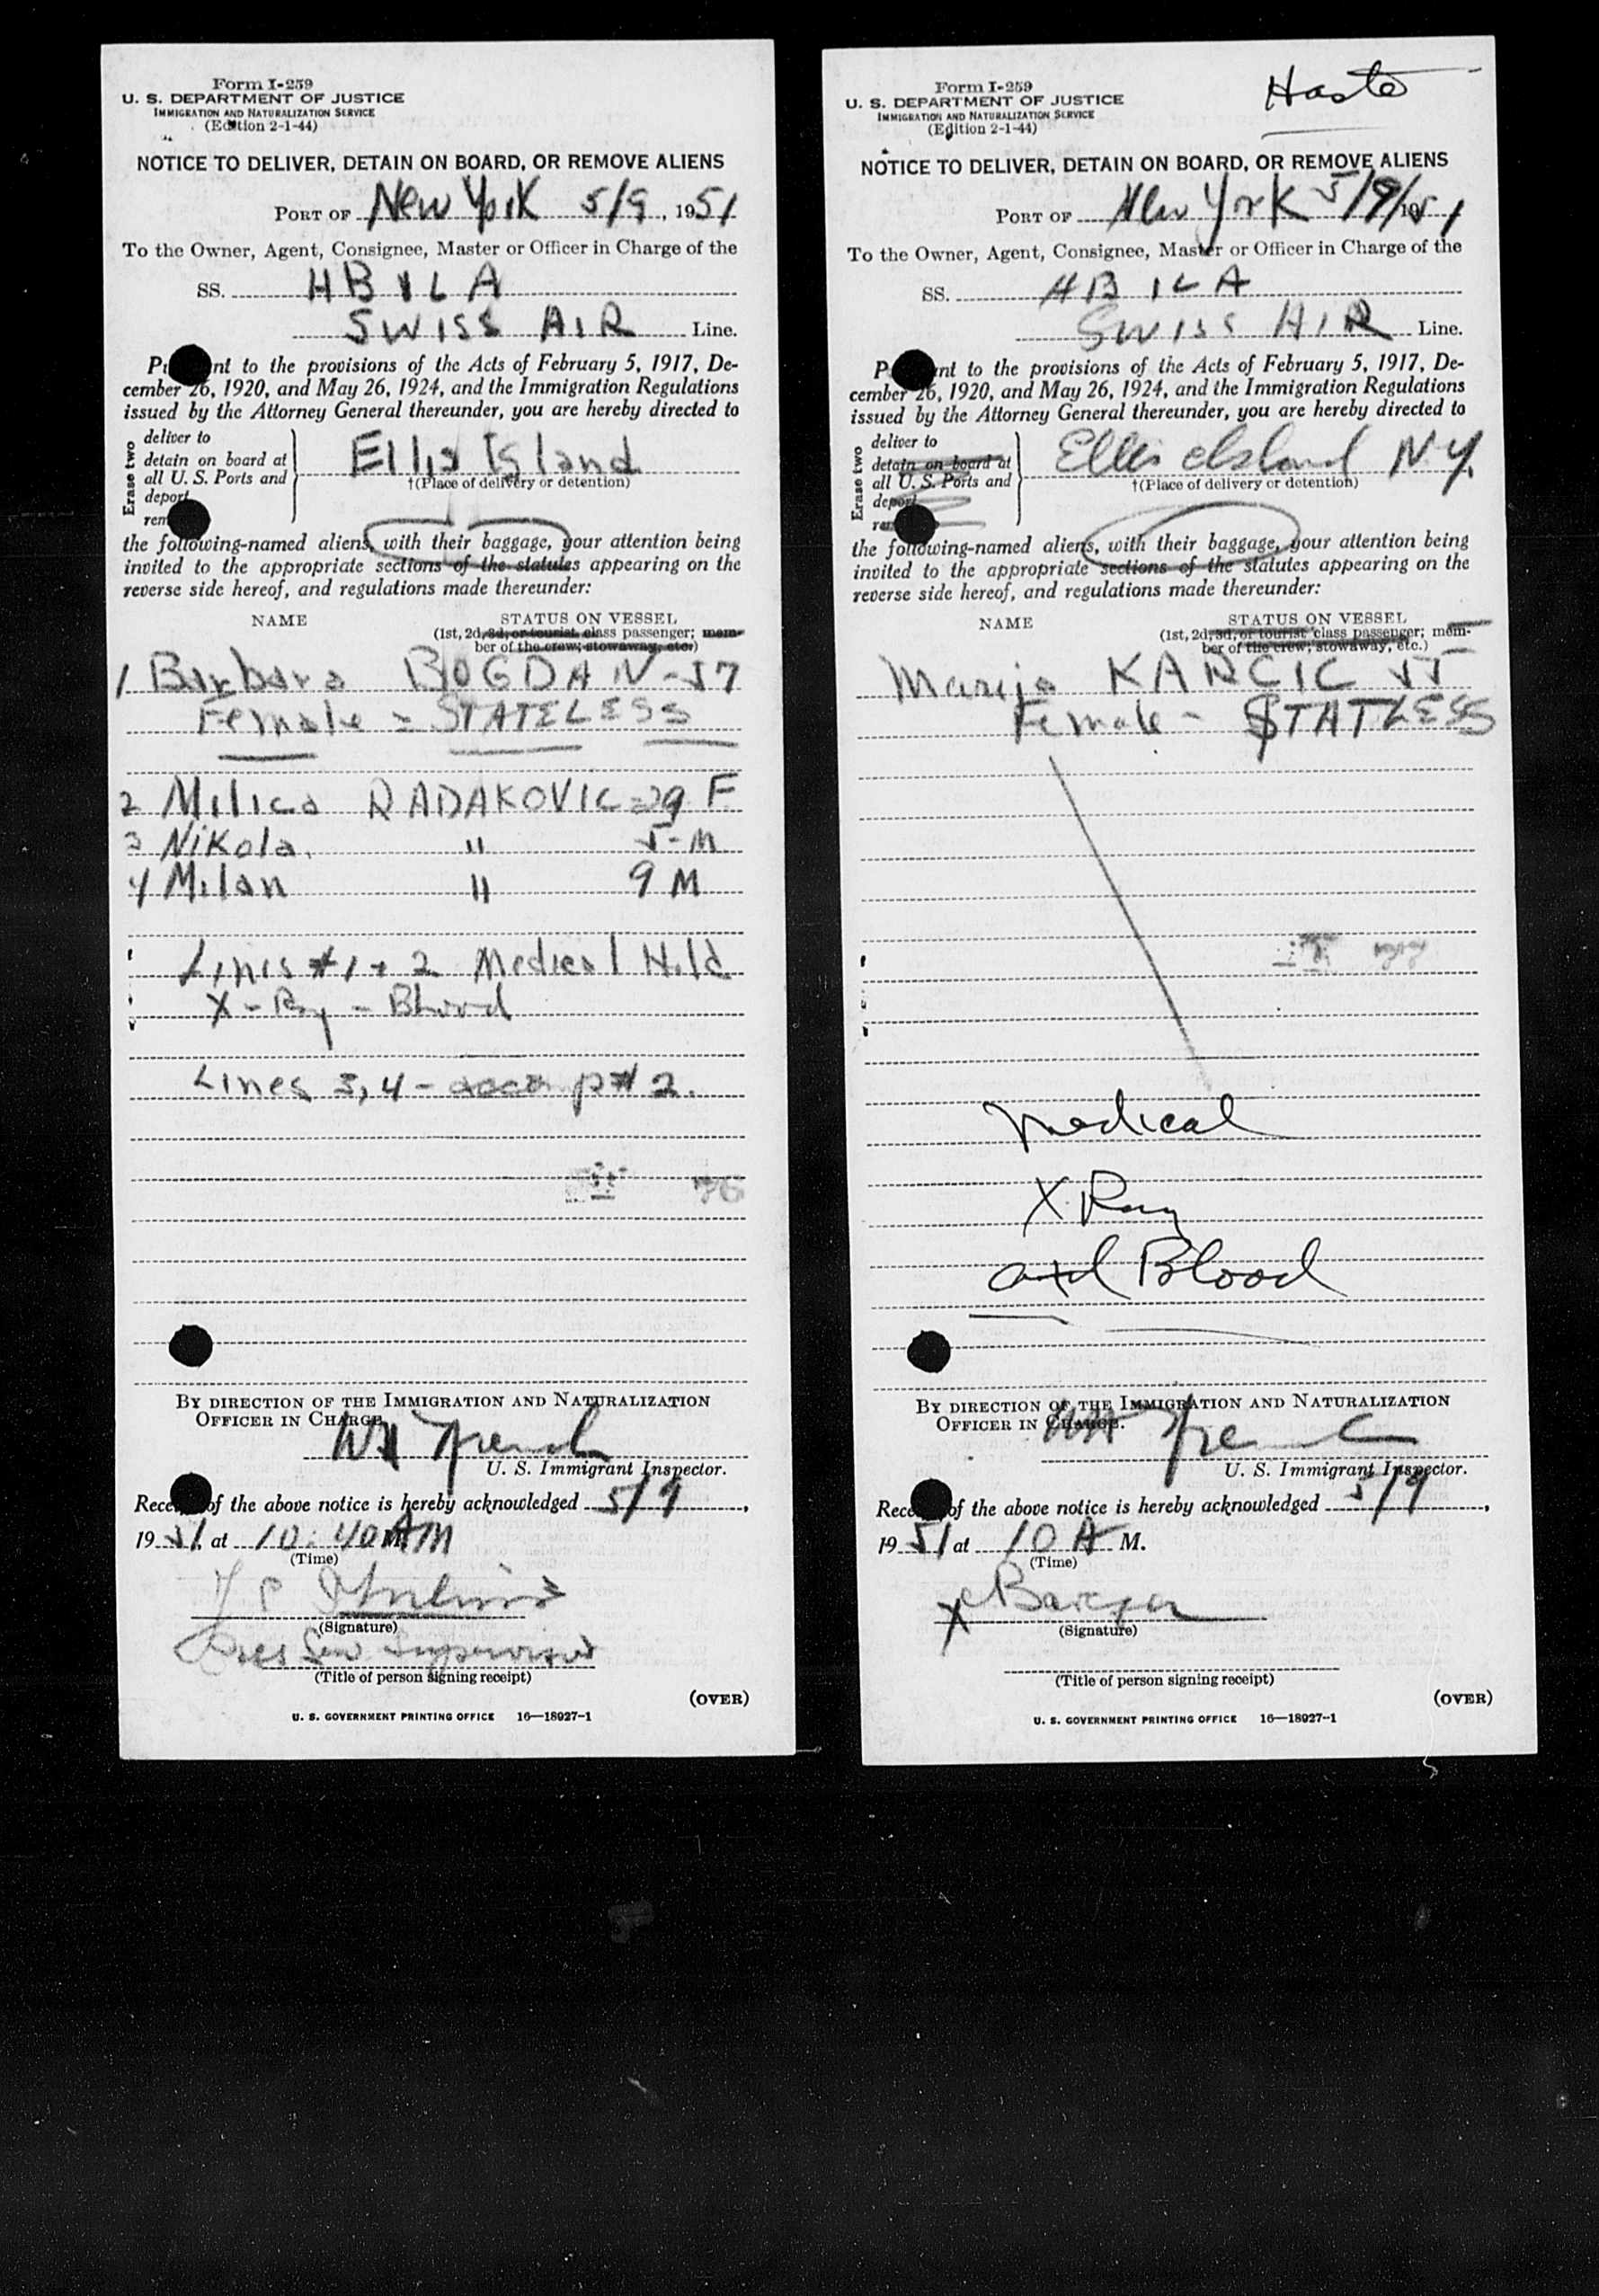 Form I-259
U. S. DEPARTMENT OF JUSTICE
IMMIGRATION AND NATURALIZATION SERVICE
(Edition 2-1-44)
NOTICE TO DELIVER, DETAIN ON BOARD, OR REMOVE ALIENS
PORT OF New York 5/9, 1951
To the Owner, Agent, Consignee, Master or Officer in Charge of the
SS. HB ILA
SWISS AIR Line.
P nt to the provisions of the Acts of February 5, 1917, De-
cember 26, 1920, and May 26, 1924, and the Immigration Regulations
issued by the Attorney General thereunder, you are hereby directed to
Erase two
deliver to
detain on board at
all U. S. Ports and
deport
rem
Ellis Island
†(Place of delivery or detention)
the following-named aliens, with their baggage, your attention being
invited to the appropriate sections of the statutes appearing on the
reverse side hereof, and regulations made thereunder:
NAME STATUS ON VESSEL
(1st, 2d, 3d, or tourist class passenger; mem-
ber of the crew; stowaway, etc.)
1 Barbara BOGDAN - 57
Female = STATELESS
2 Milica RADAKOVIC = 29 F
3 Nikola. " 5 - M
4 Milan " 9 M
Lines #1 + 2 Medical Hold
X - Ray - Blood
Lines 3, 4 - accomp # 2.
BY DIRECTION OF THE IMMIGRATION AND NATURALIZATION
OFFICER IN CHARGE.
French
U. S. Immigrant Inspector.
Rece of the above notice is hereby acknowledged 5/9,
1951 at 10:40 AM
(Time)
(Signature)
Supervisor
(Title of person signing receipt)
(OVER)
U. S. GOVERNMENT PRINTING OFFICE 16—18927-1
Form I-259
U. S. DEPARTMENT OF JUSTICE
IMMIGRATION AND NATURALIZATION SERVICE
(Edition 2-1-44)
Haste
NOTICE TO DELIVER, DETAIN ON BOARD, OR REMOVE ALIENS
PORT OF New York 5/9/51
To the Owner, Agent, Consignee, Master or Officer in Charge of the
SS. HB ILA
SWISS AIR Line.
P nt to the provisions of the Acts of February 5, 1917, De-
cember 26, 1920, and May 26, 1924, and the Immigration Regulations
issued by the Attorney General thereunder, you are hereby directed to
Erase two
deliver to
detain on board at
all U. S. Ports and
deport
Ellis Island N.Y.
†(Place of delivery or detention)
the following-named aliens, with their baggage, your attention being
invited to the appropriate sections of the statutes appearing on the
reverse side hereof, and regulations made thereunder:
NAME STATUS ON VESSEL
(1st, 2d, 3d, or tourist class passenger; mem-
ber of the crew; stowaway, etc.)
Marija KARCIC 55
Female - STATLESS
Medical
X Ray
and Blood
BY DIRECTION OF THE IMMIGRATION AND NATURALIZATION
OFFICER IN CHARGE.
French
U. S. Immigrant Inspector.
Rece of the above notice is hereby acknowledged 5/9,
1951 at 10 A M.
(Time)
X
(Signature)
(Title of person signing receipt)
(OVER)
U. S. GOVERNMENT PRINTING OFFICE 16—18927-1